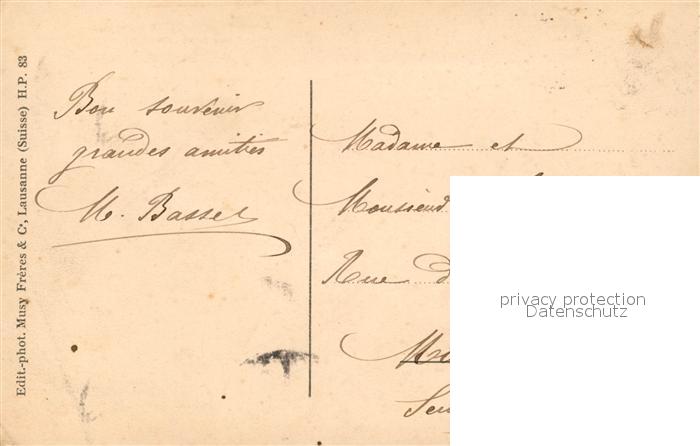 Edit.-phot. Musy Frères & Cie, Lausanne (Suisse) H.P. 83
Bon souvenir
grandes amitiés
M. Basset
Madame et
Monsieur
Rue d
privacy protection
Datenschutz